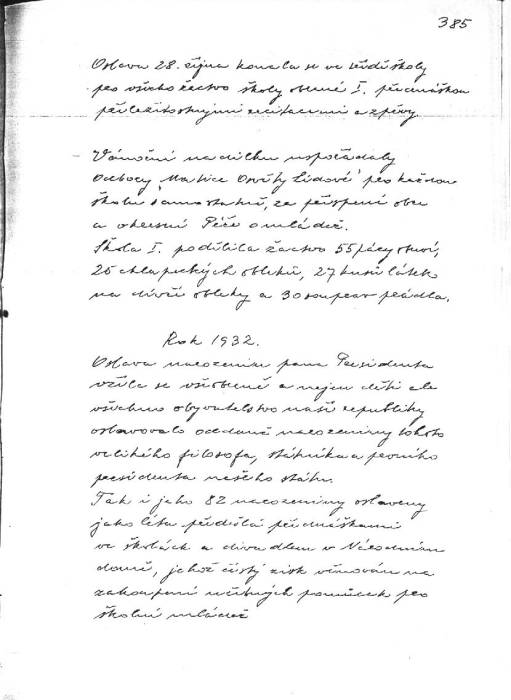 385
Oslava 28. října konala se ve všech školy
pro všechno žactvo školy obecné I. přednáškou
příležitostnými recitacemi a zpěvy.
Vánoční nadílku uspořádaly
Odbory „Matice Osvěty Lidové" pro každou
školu samostatně, za přispění obce
a okresní Péče o mládež.
Škola I. podělila žactvo 55 páry obuvi,
25 chlapeckých obleků, 27 kusů látek
na dívčí obleky a 30 souprav prádla.
Rok 1932.
Oslava narozenin pana Presidenta
vžila se všeobecně a nejen děti ale
všechno obyvatelstvo naší republiky
oslavovalo oddaně narozeniny tohoto
velikého filosofa, státníka a prvního
presidenta našeho státu.
Tak i jeho 82 narozeniny oslaveny
jako léta předešlá přednáškami
ve školách a divadlem v Národním
domě, jehož čistý zisk věnován na
zakoupení učebných pomůcek pro
školní mládež